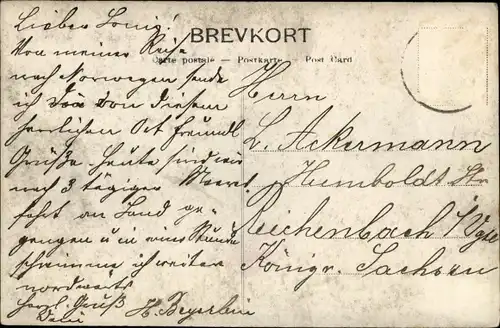 Lieber Louis!
BREVKORT
Carte postale – Postkarte – Post Card
Von meiner Reise
nach Norwegen sende
ich von diesem
herrlichen Ort freundl
Grüße. Heute sind wir
nach 3 tägiger Meeres
fahrt an Land ge-
gangen u in einer Stunde
schwimme ich weiter
nordwärts
Herzl. Gruß
Dein H. Beyerlein
Herrn
L. Ackermann
Humboldt Str
Reichenbach i/Vgtl
Königr. Sachsen